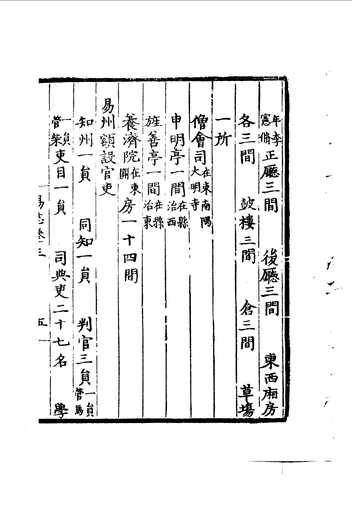 年李憲脩正廳三間 後廳三間 東西廂房
各三間 鼓樓三間 倉三間 草場
一所
僧會司在東南隅大明寺
申明亭一間在縣治西
旌善亭一間在縣治東
養濟院在東關房一十四間
易州額設官吏
知州一員 同知一員 判官三員一員管馬
一員管柴吏目一員 司典吏二十七名 學
易志卷三 五